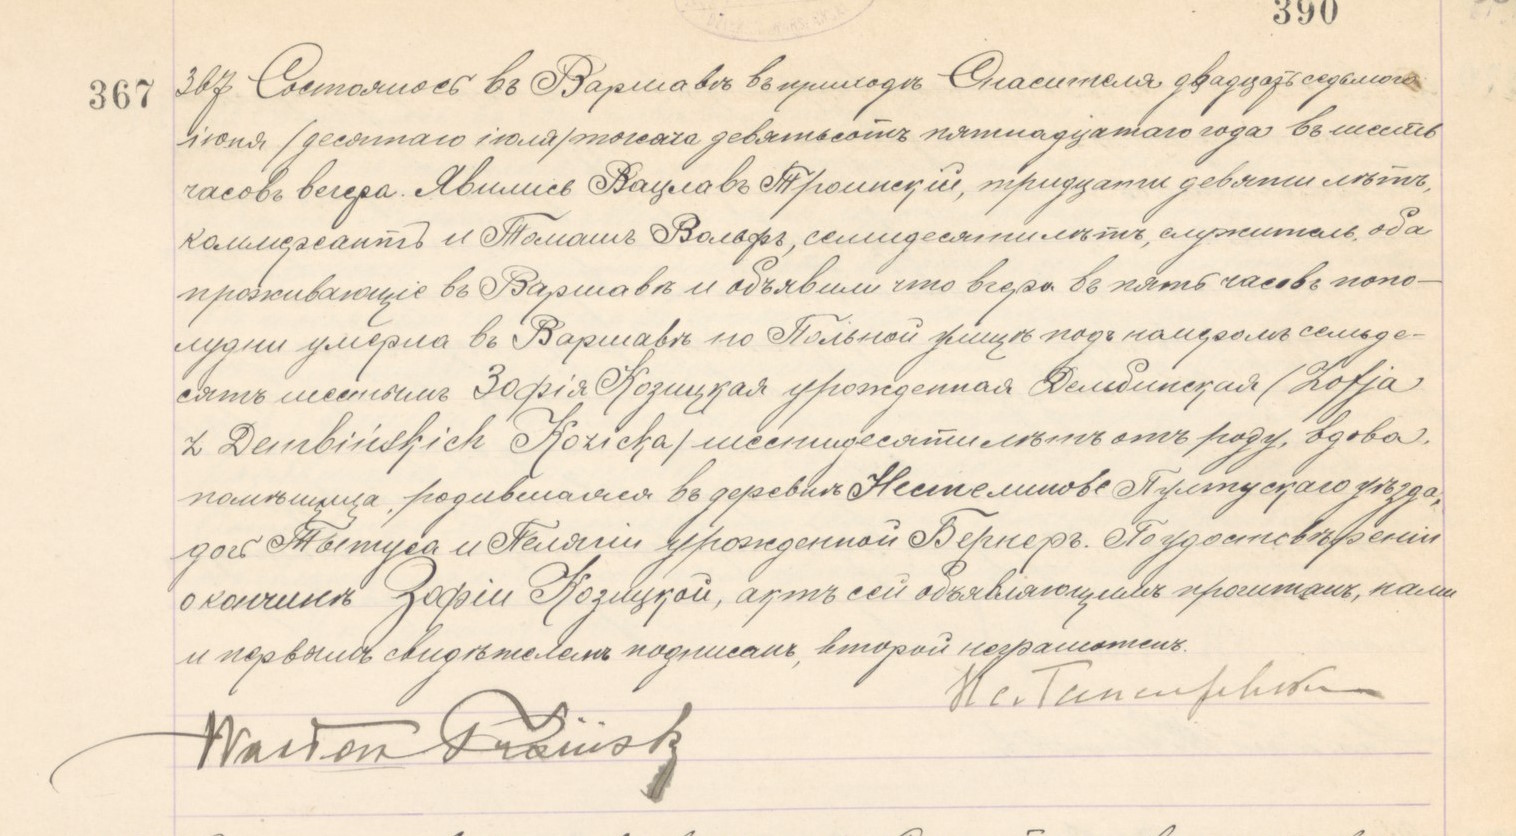 390
367 367 Состоялось въ Варшавѣ въ приходѣ Спасителя двадцать седьмого
іюня /десятаго іюля/ тысяча девятьсотъ пятнадцатаго года въ шесть
часовъ вечера. Явились Вацлавъ Троинскій, тридцати девяти лѣтъ,
коммерсантъ и Томашъ Вольфъ, семидесяти лѣтъ, служитель, оба
проживающіе въ Варшавѣ и объявили что вчера въ пять часовъ попо-
лудни умерла въ Варшавѣ по Польной улицѣ подъ номеромъ семьде-
сятъ шестымъ Зофія Козицкая урожденная Дембинская /Zofja
z Dembińskich Kozicka/ шестидесяти лѣтъ отъ роду, вдова,
помѣщица, родившаяся въ деревнѣ Пултускаго уѣзда,
дочь Тытуса и Пелягіи урожденной Бернеръ. По удостовѣреніи
о кончинѣ Зофіи Козицкой, актъ сей объявляющимъ прочитанъ, нами
и первымъ свидѣтелемъ подписанъ, второй неграмотенъ.